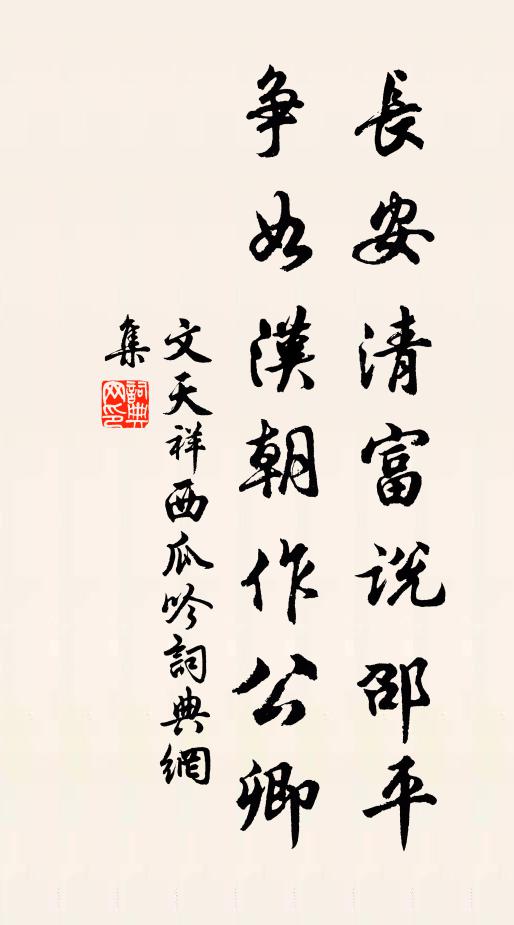 長安清富說邵平
争如漢朝作公卿
文天祥西瓜吟詞典網
集
詞典網印